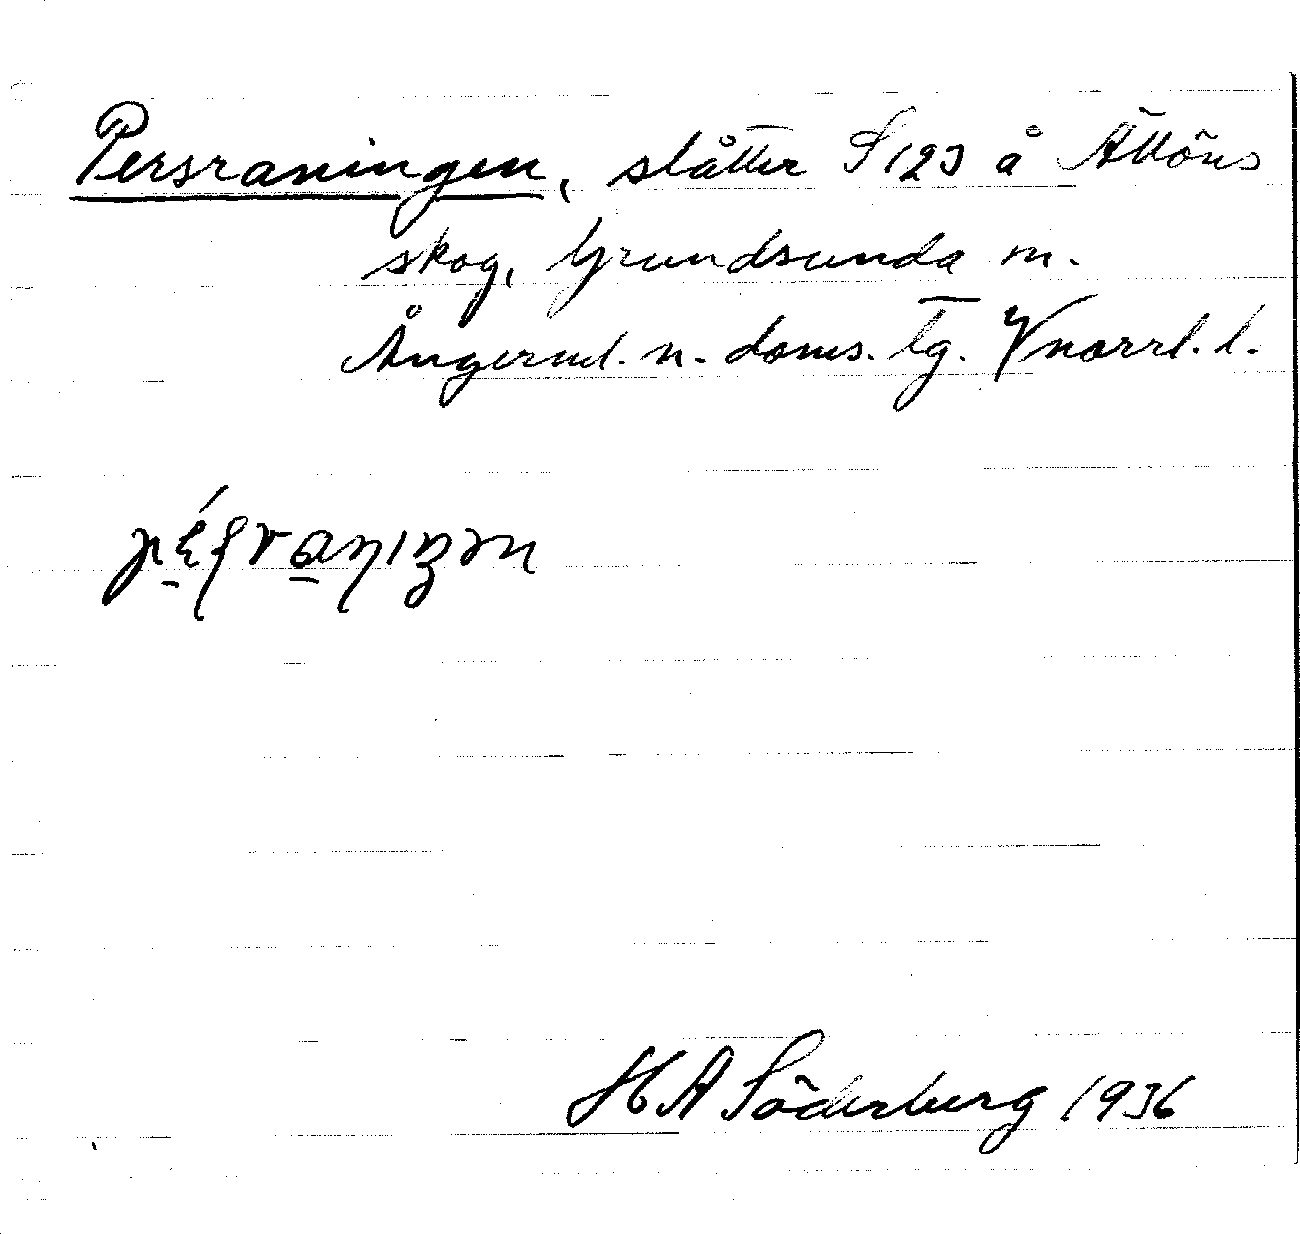 Persraningen, slåtter S 123 å Ällöns
skog, Grundsunda sn.
Ångerml. n. doms. tg. Vnorrl. l.
H A Söderberg 1936